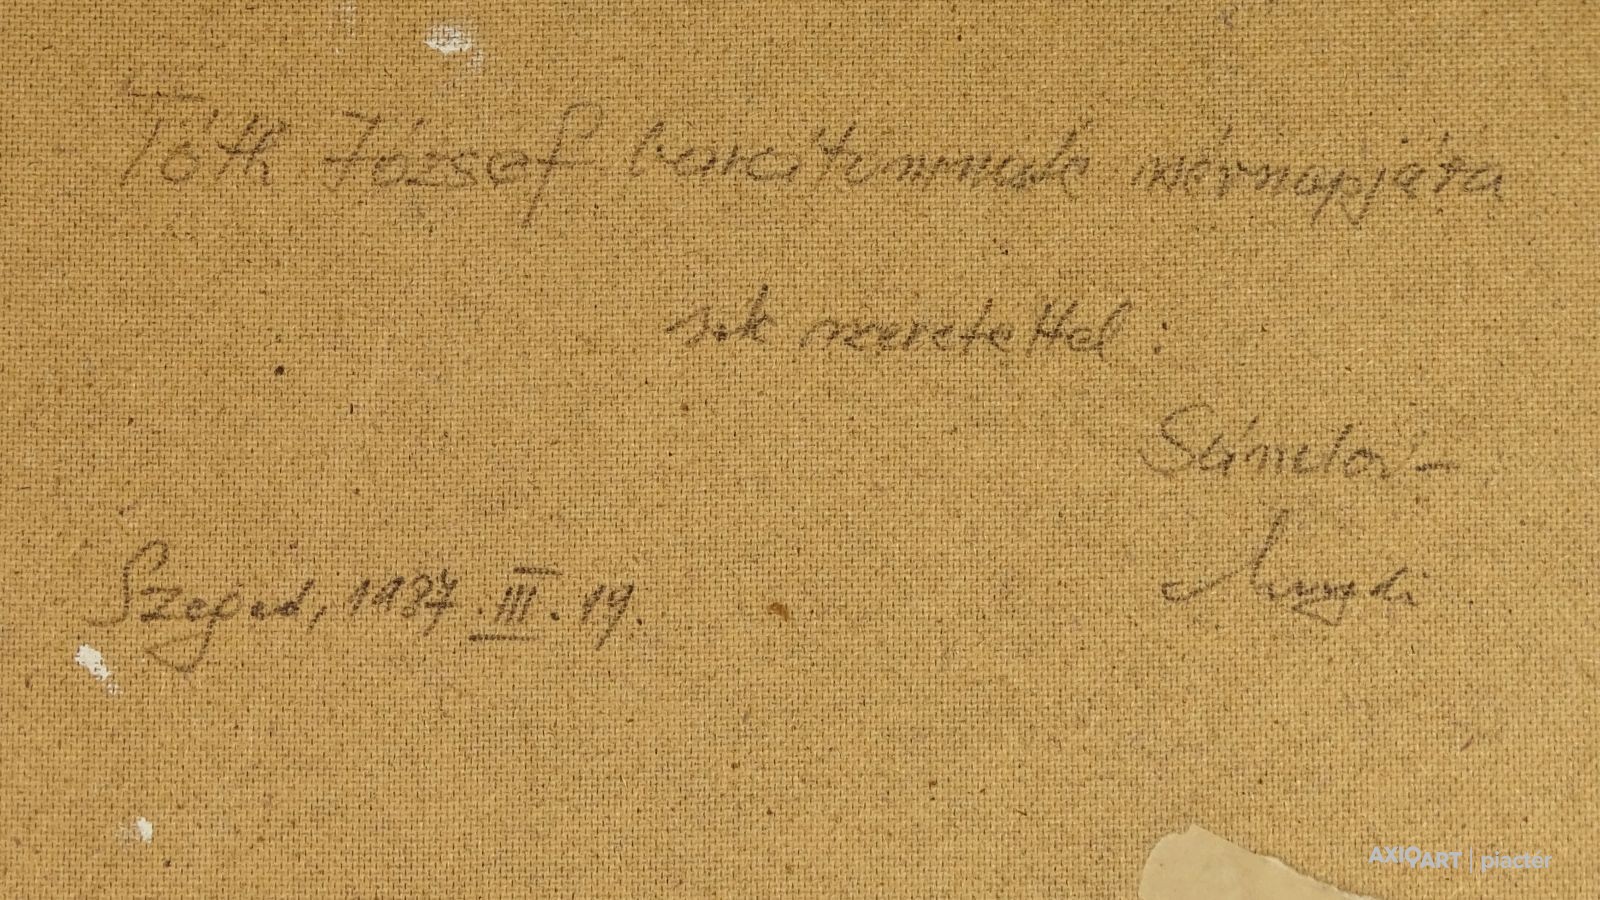 Tóth József barátomnak névnapjára
sok szeretettel:
Sándor-
Szeged, 1987. III. 19.
AXIOART | piactér